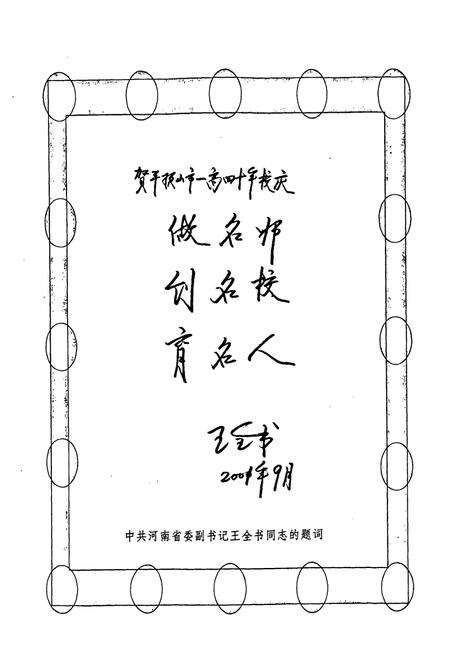 贺平顶山市一高四十年校庆
做名师
创名校
育名人
王全书
2001年9月
中共河南省委副书记王全书同志的题词